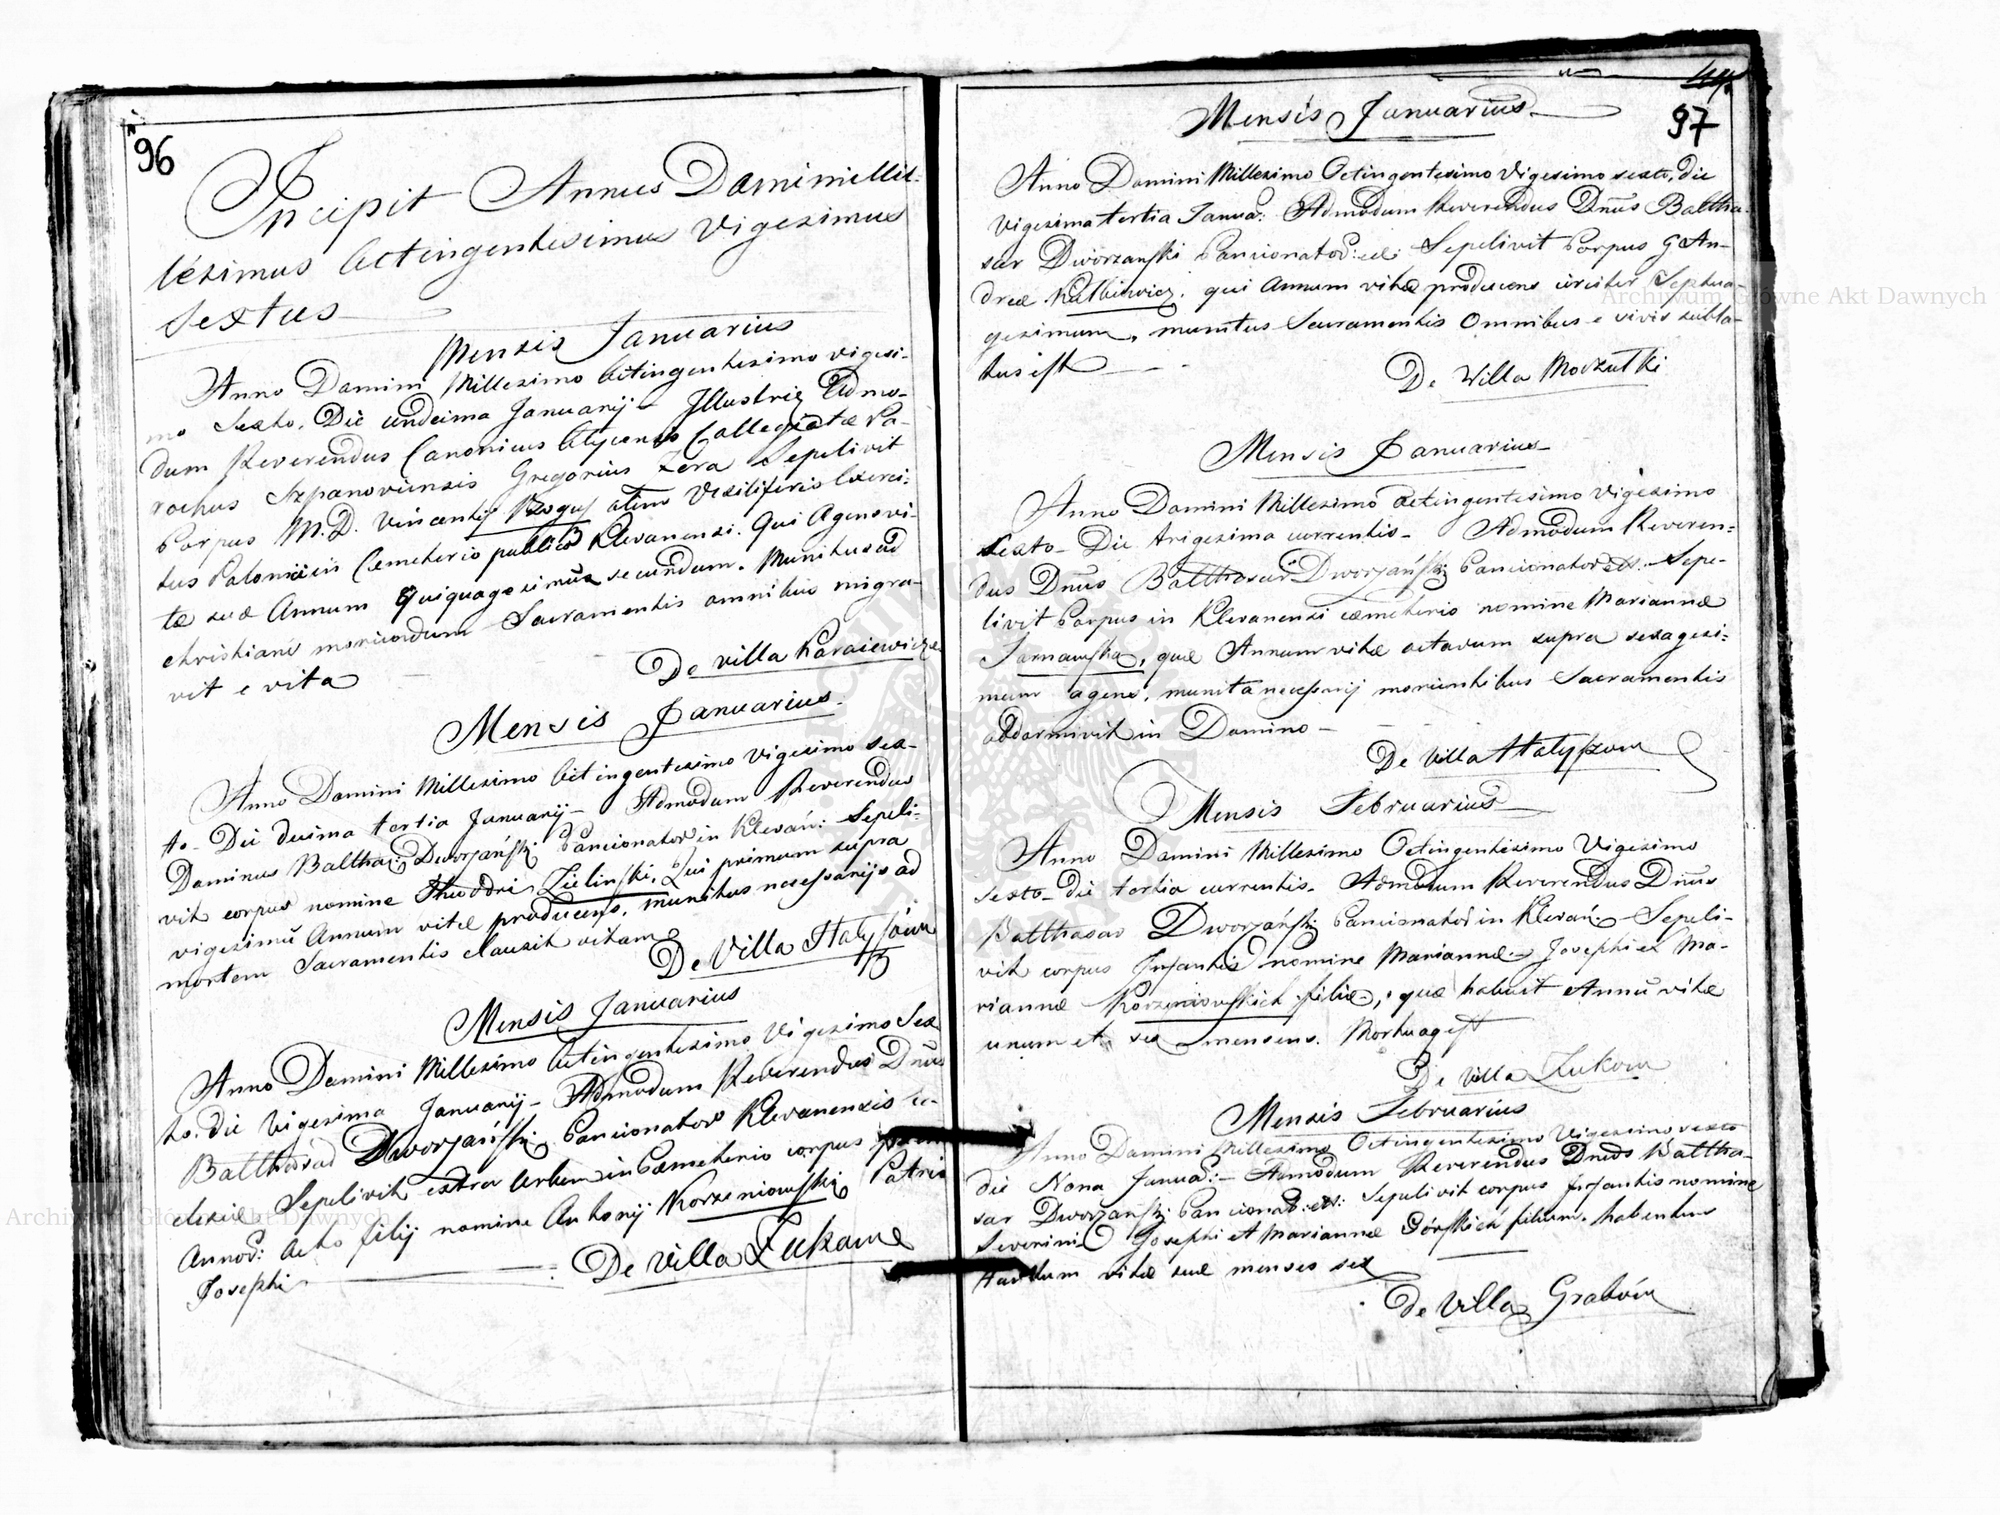 96
Incipit Annus Domini Mil-
lésimus Octingentesimus Vigesimus
Sextus
Mensis Januarius
Anno Domini Millesimo Octingentesimo vigesi-
mo Sexto. Die undecima Januarij - Illustris Admo-
dum Reverendus Canonicus Olycensis Collegiatæ Pa-
rochus Szpanoviensis Gregorius Zera Sepelivit
Corpus M. D. Vincentij olim Vexiliferis Exerci-
tus Poloniæ in Cemeterio publico Klevanensi. Qui Agens vi-
tæ suæ Annum Quiquagesimum secundum. Munitus ad
christiane moriendum Sacramentis omnibus migra-
vit e vita
De villa Karaiewicze
Mensis Januarius.
Anno Domini Millesimo Octingentesimo Vigesimo Sex-
to. Die decima tertia Januarij - Admodum Reverendus
Dominus Baltha: Dworzański Cancionator in Klevań: Sepeli-
vit corpus nomine Theodori Zielinski, Qui primum supra
vigesimū Annum vitæ producens, munitus necessarijs ad
mortem Sacramentis clausit vitam
De Villa Hołyszów
Mensis Januarius
Anno Domini Millesimo Octingentesimo Vigesimo Sex
to. die Vigesima Januarij - Admodum Reverendus Dnūs
Balthasar Dworzański Cancionator Klevanensis ec-
clesiæ Sepelivit extra Urbem in Cæmeterio corpus
Annor: Octo filij nomine Antonij Korzeniowski Patris
Josephi
De Villa Zukowe
97
Mensis Januarius
Anno Domini Millesimo Octingentesimo Vigesimo sexto, die
Vigesima tertia Janua: Admodum Reverendus Dnūs Baltha-
sar Dworzanski Cancionator: Sepelivit Corpus G An-
dreæ qui Annum vitæ producens circiter Septua-
gesimum, munitus Sacramentis Omnibus e vivis subla-
tus est
De Villa Moszutki
Mensis Januarius
Anno Domini Millesimo Octingentesimo Vigesimo
Sexto - Die trigesima currentis - Admodum Reveren-
dus Dnūs Balthasar Dworzański Cancionator Sepe-
livit Corpus in Klevanensi cæmeterio nomine Mariannæ
Tarnawska, quæ Annum vitæ octavum supra sexagesi-
mum agens, munita necessarij morientibus Sacramentis
obdormivit in Domino -
De Villa Hołyszow
Mensis Februarius
Anno Domini Millesimo Octingentesimo Vigesimo
sexto - die tertia currentis - Admodum Reverendus Dnūs
Balthasar Dworzański Cancionator in Klevań: Sepeli-
vit corpus Infantis nomine Mariannæ - Josephi et Ma-
riannæ Korzeniowskich filiæ, quæ habuit Annū vitæ
unum et sex menses. Mortua est
De Villa Zukow
Mensis Februarius
Anno Domini Millesimo Octingentesimo Vigesimo sexto
die Nona Januar: - Admodum Reverendus Dnūs Baltha-
sar Dworzański Cancionat: Sepelivit corpus Infantis nomine
Severini Josephi et Mariannæ Górskich filium. habentem
vitæ suæ menses sex
de Villa Grabów
Archiwum Główne Akt Dawnych
Archiwum Główne Akt Dawnych